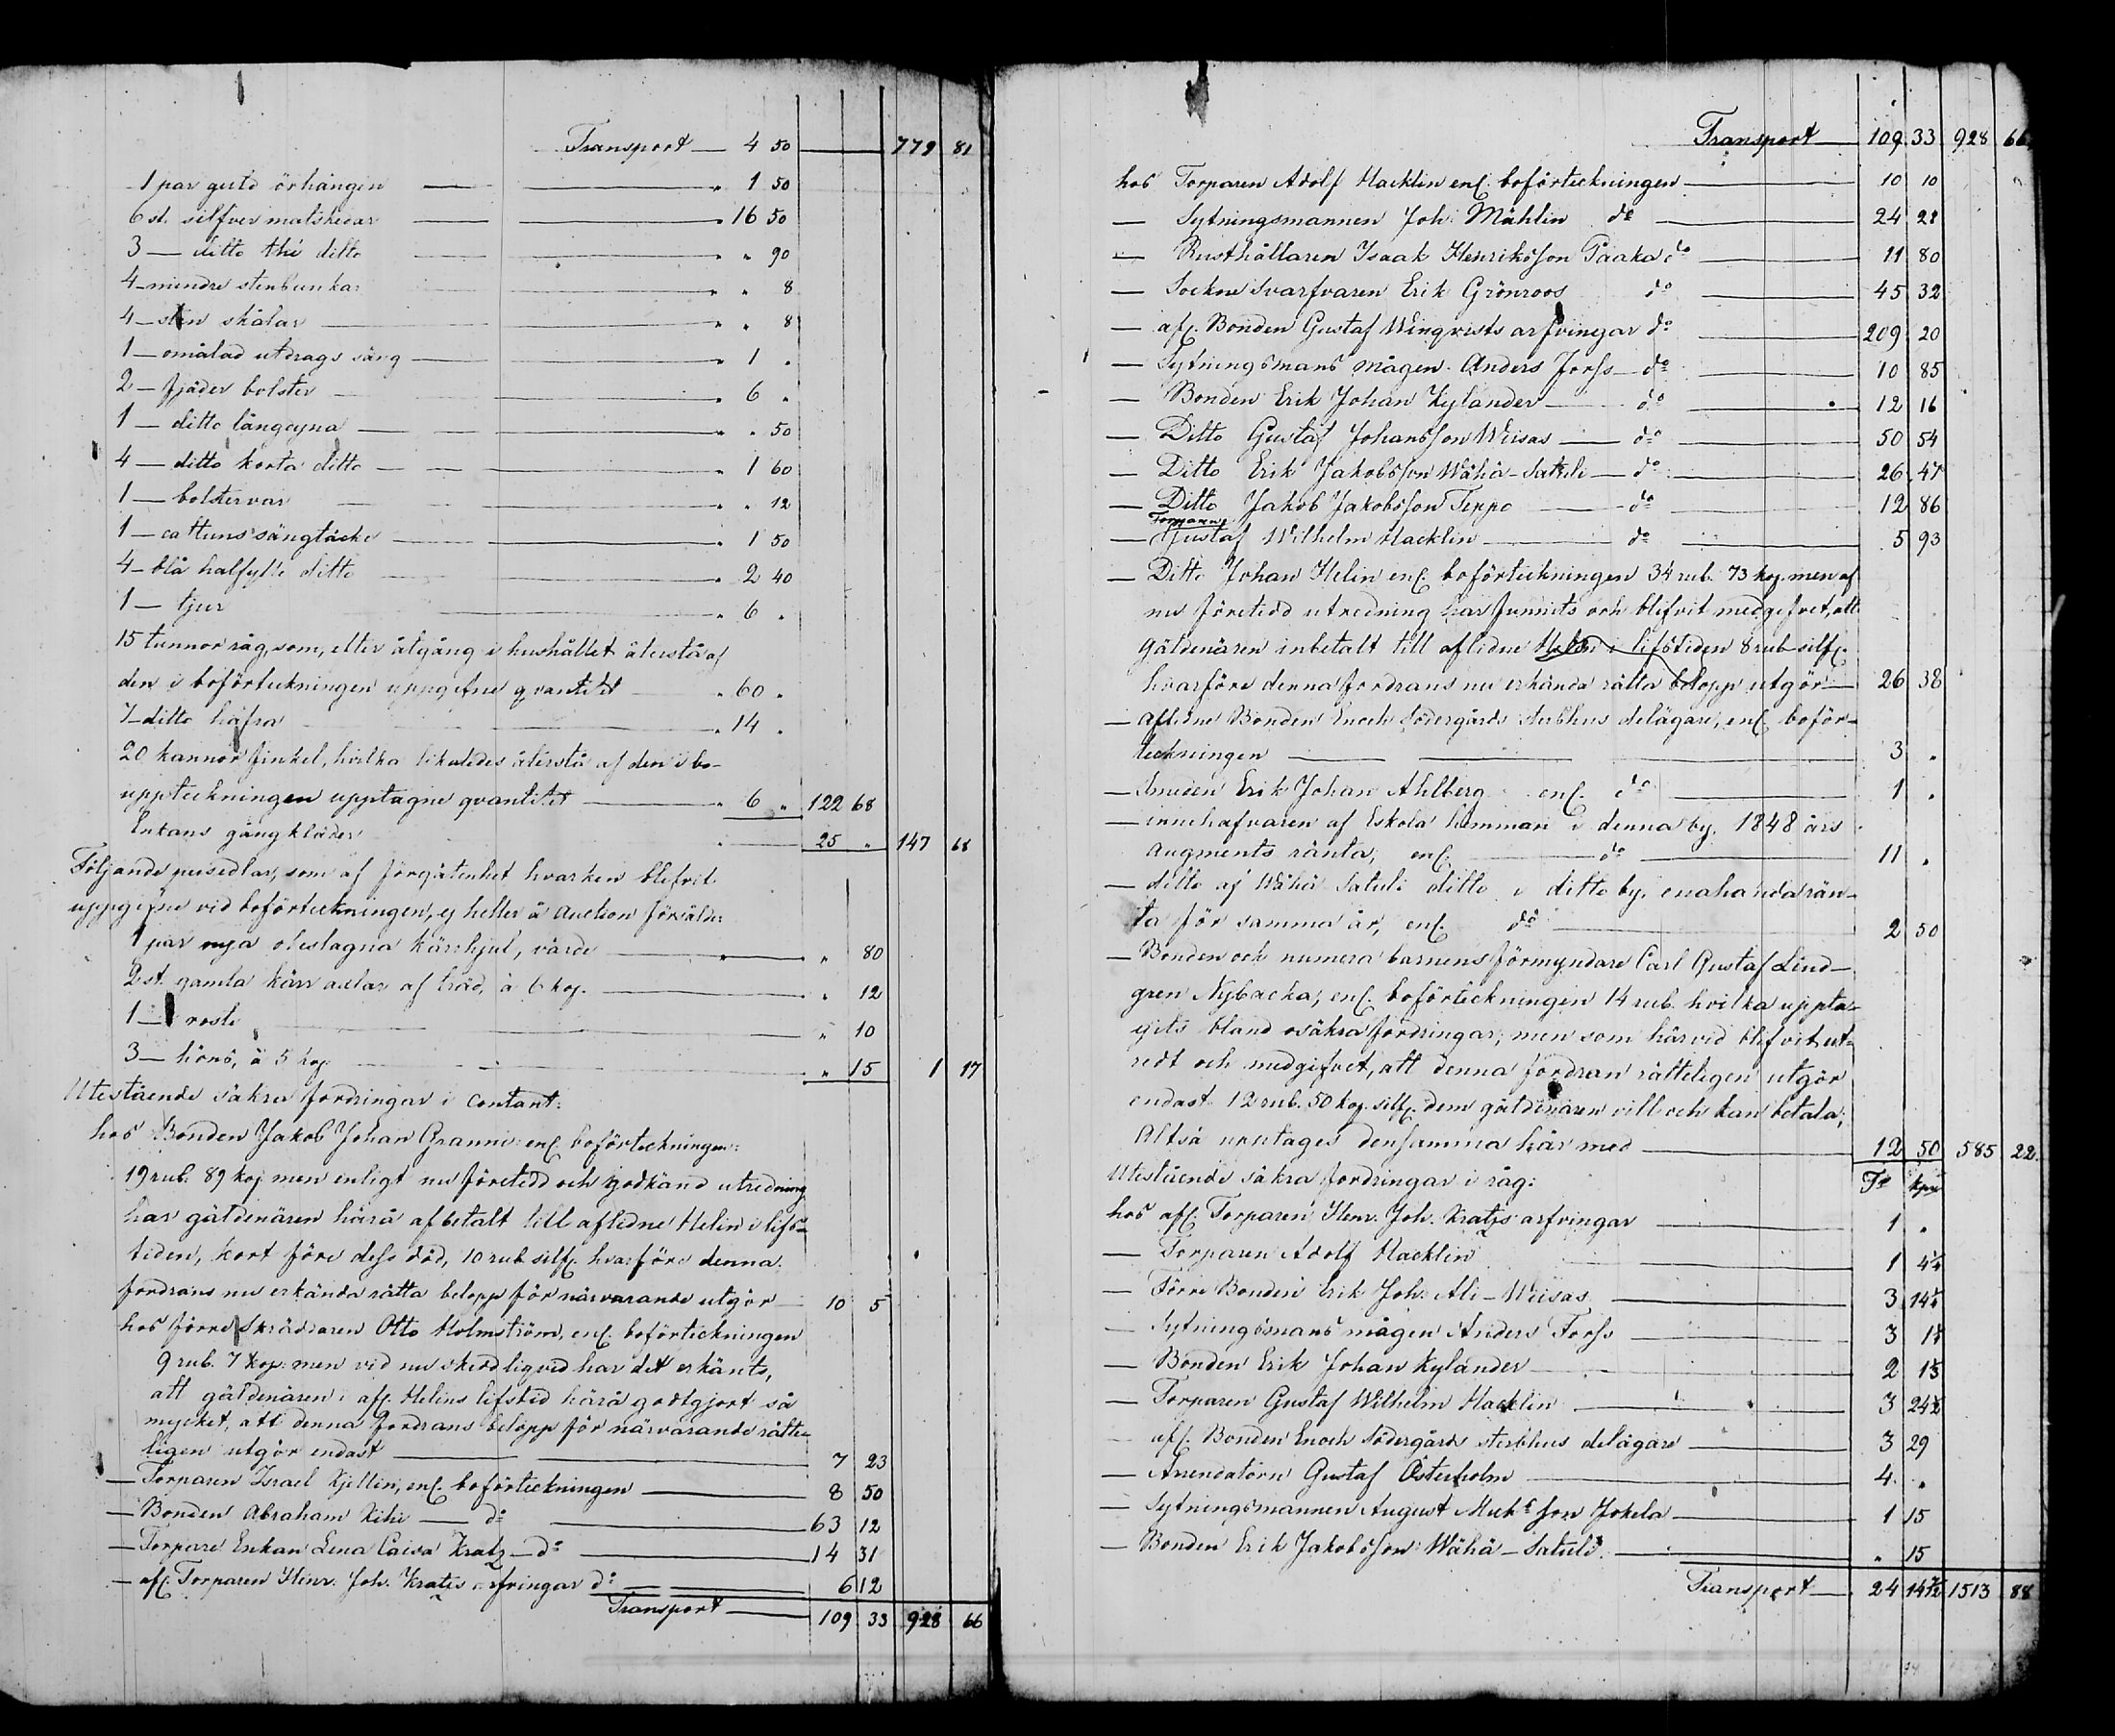 Transport — 4 50 — 779 81
1 par guld örhängen — " 1 50
6 st. silfver matskedar — " 16 50
3 — ditto thé ditto — " " 90
4 — mindre stenbunkar — " " 8
4 — sten skålar — " " 8
1 — omålad utdrags säng — " 1 "
2 — fjäder bolster — " 6 "
1 — ditto långdyna — " " 50
4 — ditto korta ditto — " 1 60
1 — bolstervar — " " 12
1 — cattuns sängtäcke — " 1 50
4 — blå halfylle ditto — " 2 40
1 — tjur — " 6 "
15 tunnor råg, som, efter åtgång i hushållet återstå af
den i boförteckningen uppgifne qvantitet — " 60 "
7 — ditto hafra — " 14 "
20 kannor finkel, hvilka likaledes återstå af den i bo-
uppteckningen upptagne qvantitet — " 6 " 122 68
Enkans gångkläder — " 25 " 147 68
Följande persedlar, som af förgätenhet hvarken blefvit
uppgifne vid boförteckningen, ej heller å Auction försålde:
1 par nya obeslagna kärrhjul, värde — " 80
2 st. gamla kärr axlar af träd, à 6 kop. — " 12
1 — roste — " 10
3 — höns, à 5 kop — " 15 1 17
Utestående säkra fordringar i Contant:
hos Bonden Jakob Johan Granni enl. boförteckningen:
19 rub. 89 kop men enligt nu företedd och godkänd utredning
har gäldenären härå afbetalt till aflidne Helin i lifs-
tiden, kort före dess död, 10 rub silf. hvarföre denna
fordrans nu erkända rätta belopp för närvarande utgör — 10 5
hos förre Skräddaren Otto Holmström, enl. boförteckningen
9 rub. 7 kop: men vid nu skedd liqvid har det erkänts,
att gäldenären i afl. Helins lifstid härå godtgjort så
mycket, att denna fordrans belopp för närvarande rätte-
ligen utgör endast — 7 23
— Torparen Israel Kjellin, enl. boförteckningen — 8 50
— Bonden Abraham Kihi — do — 63 12
— Torpare Enkan Lena Caisa Kratz — do — 14 31
— afl. Torparen Henr. Joh. Kratzs arfvingar do — 6 12
Transport — 109 33 928 66
Transport — 109 33 928 66
hos Torparen Adolf Hacklin enl. boförteckningen — 10 10
— Sytningsmannen Joh: Mählin do — 24 21
— Rusthållaren Isaak Henriksson Paaka do — 11 80
— Sockne Svarfvaren Erik Grönroos do — 45 32
— afl. Bonden Gustaf Winqvists arfvingar do — 209 20
— Sytningsmans mågen Anders Forss — do — 10 85
— Bonden Erik Johan Kylander — do — 12 16
— Ditto Gustaf Johansson Wiisas — do — 50 54
— Ditto Erik Jakobsson Wähä-Satuli — do — 26 47
— Ditto Jakob Jakobsson Teppo — do — 12 86
Torparen
— Gustaf Wilhelm Hacklin — do — 5 93
— Ditto Johan Helin enl. boförteckningen 34 rub. 73 kop. men af
nu företedd utredning har funnits och blifvit medgifvet, att
gäldenären inbetalt till aflidne Helin i lifstiden 8 rub silf.
hvarföre denna fordrans nu erkända rätta belopp utgör — 26 38
— aflidne Bonden Enoch Södergårds sterbhus delägare, enl. boför-
teckningen — 3 "
— Smeden Erik Johan Ahlberg enl. do — 1 "
— innehafvaren af Eskola hemman i denna by. 1848 års
Augments ränta, enl. — do — 11 "
— ditto af Wähä Satuli ditto i ditto by, enahanda rän-
ta för samma år, enl. do — 2 50
— Bonden och numera barnens förmyndare Carl Gustaf Lind-
gren Nybacka, enl. boförteckningen 14 rub. hvilka uppta-
gits bland osäkra fordringar; men som härvid blifvit ut-
redt och medgifvet, att denna fordran rätteligen utgör
endast 12 rub. 50 kop. silf. dem gäldenären vill och kan betala;
Altså upptages densamma här med — 12 50 585 22
Utestående säkra fordringar i råg: Tr kpr
hos afl. Torparen Henr. Joh. Kratzs arfvingar — 1 "
— Torparen Adolf Hacklin — 1
— Förre Bonden Erik Joh: Ali-Wiisas — 3
— Sytningsmans mågen Anders Forss — 3
— Bonden Erik Johan Kylander — 2
— Torparen Gustaf Wilhelm Hacklin — 3
afl. Bonden Enoch Södergårds sterbhus delägare — 3 29
— Arrendatorn Gustaf Österholm — 4 "
— Sytningsmannen August Mich:sson Jokela — 1 15
— Bonden Erik Jakobsson Wähä-Satuli — " 15
Transport — 24 1513 88